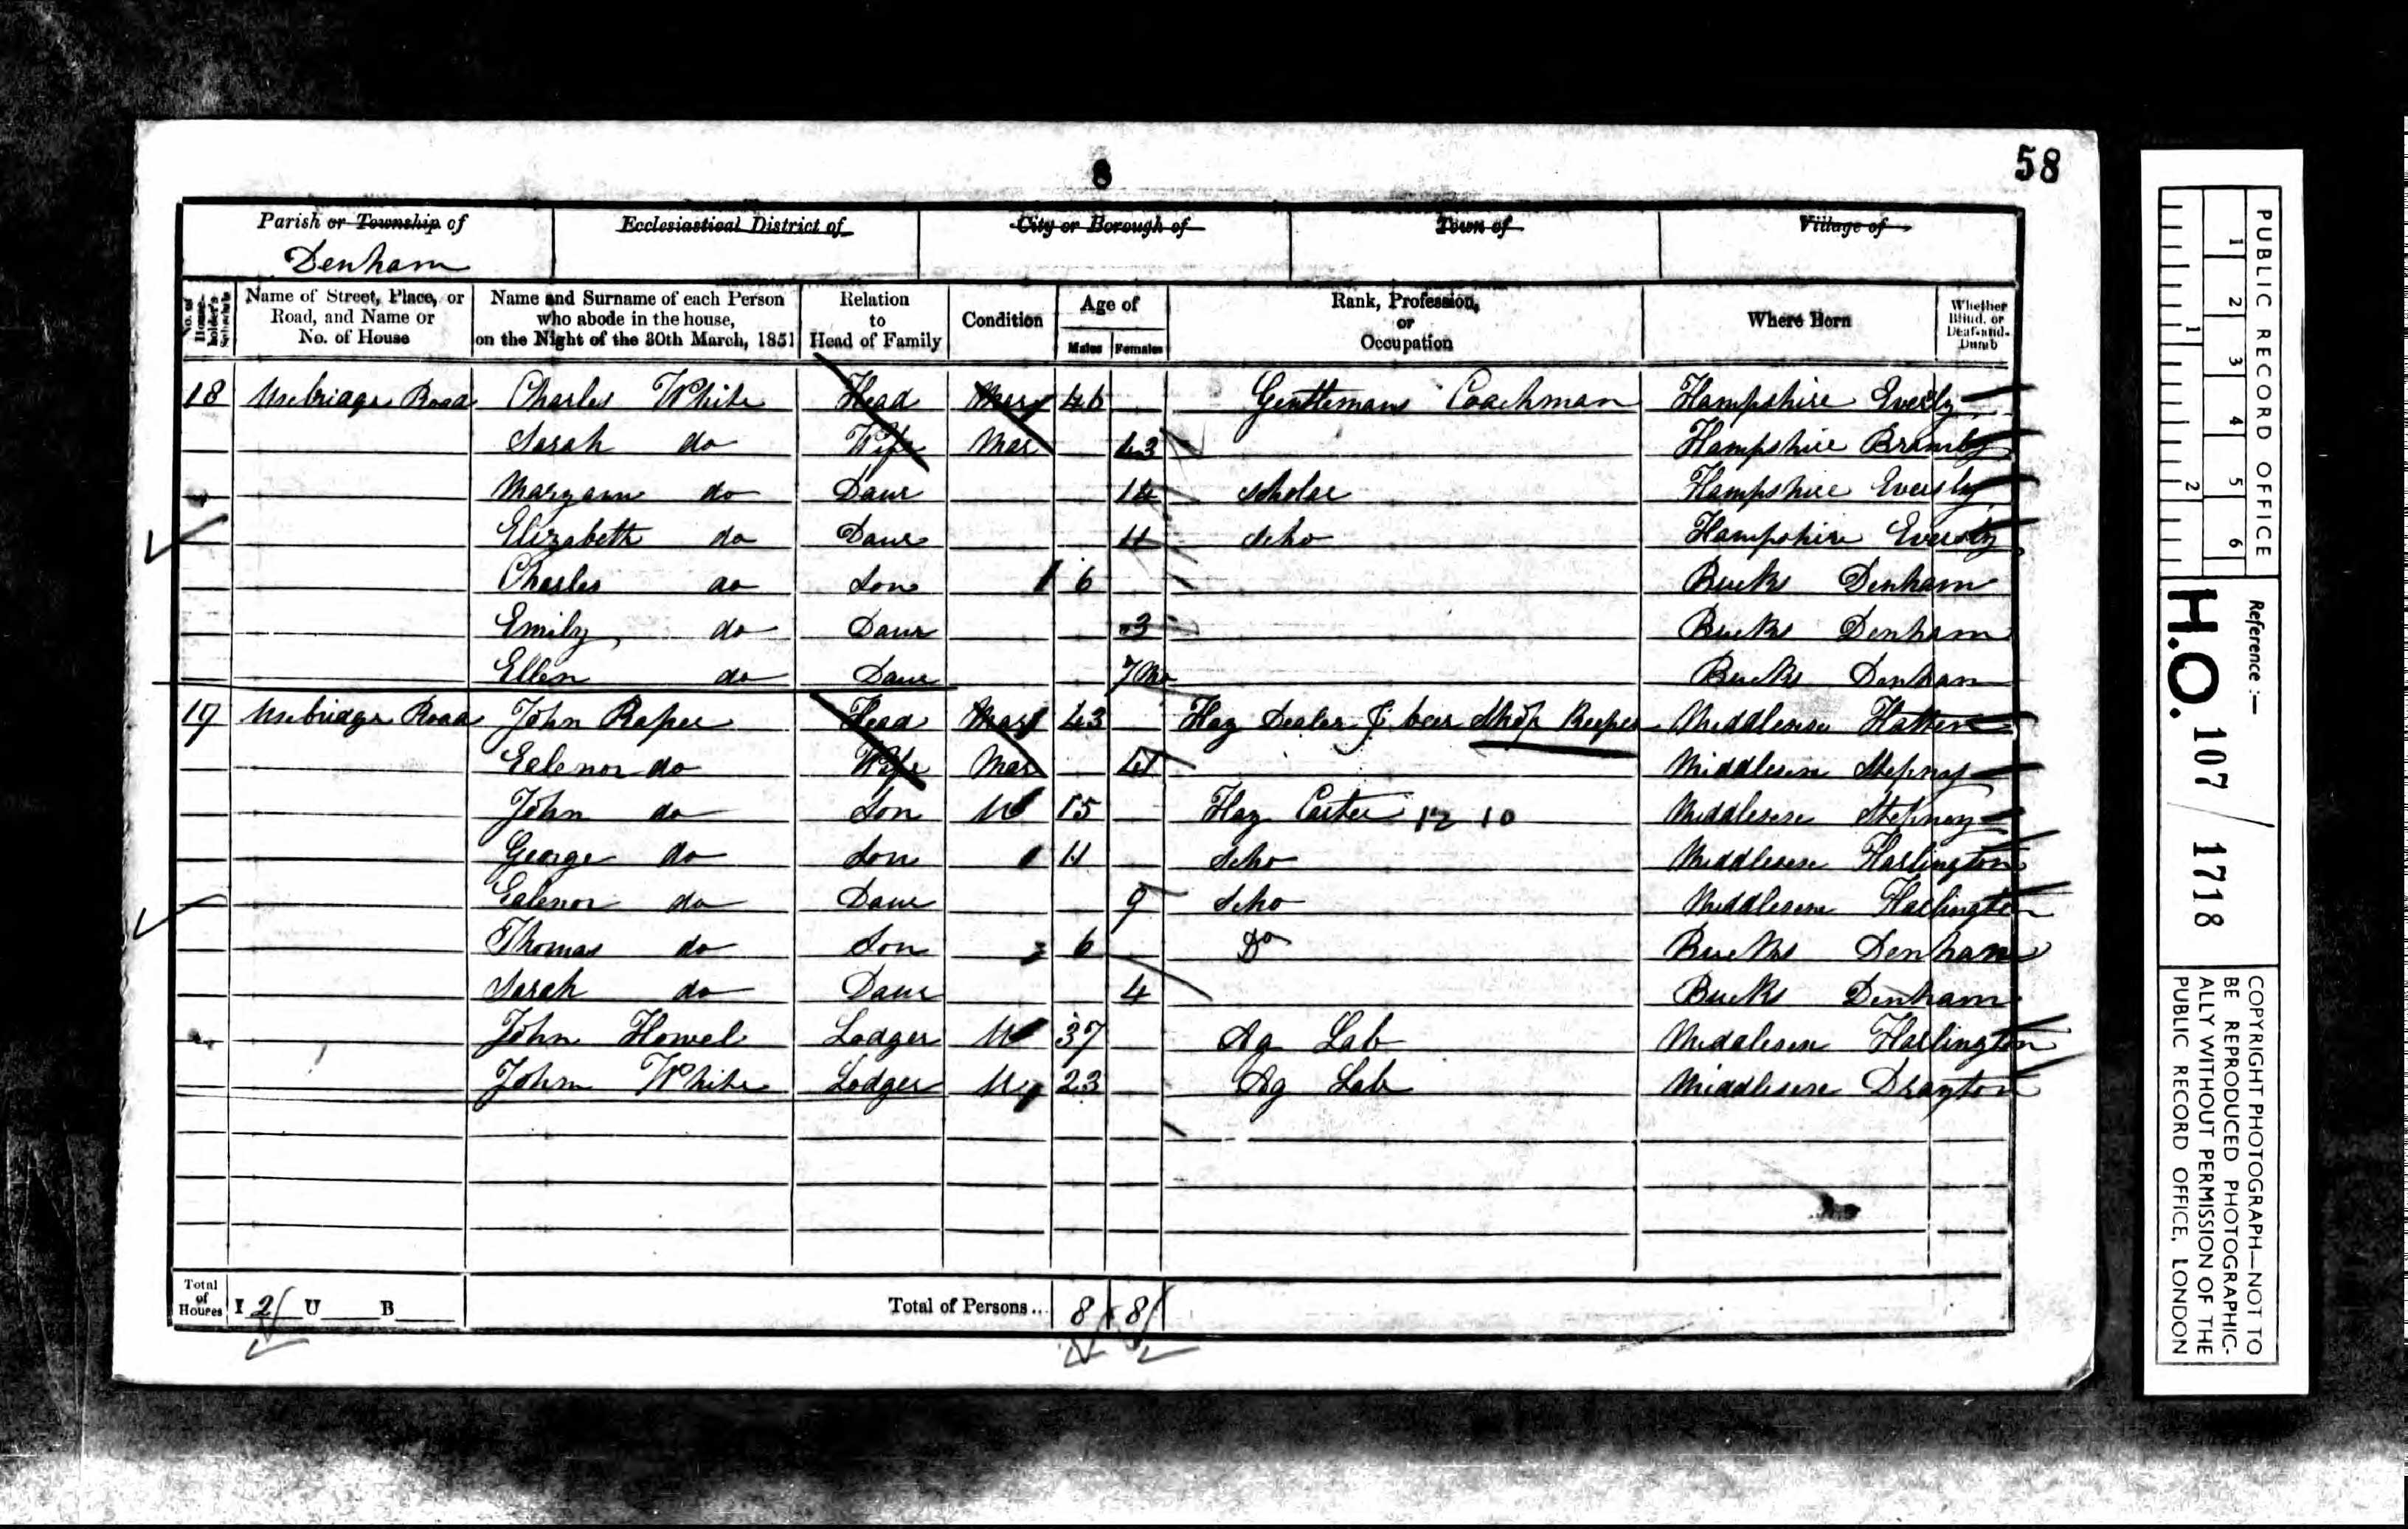 8
58
Parish or Township of
Denham
Ecclesiastical District of
City or Borough of
Town of
Village of
No. of House-holder's Schedule
Name of Street, Place, or Road, and Name or No. of House
Name and Surname of each Person who abode in the house, on the Night of the 30th March, 1851
Relation to Head of Family
Condition
Age of
Males
Females
Rank, Profession, or Occupation
Where Born
Whether Blind, or Deaf-and-Dumb
18 Uxbridge Road Charles White Head Mar 46 Gentlemans Coachman Hampshire Eversly
Sarah do Wife Mar 43 Hampshire Bramly
Maryann do Daur 14 scholar Hampshire Eversly
Elizabeth do Daur 11 scho Hampshire Eversly
Charles do Son 6 Bucks Denham
Emily do Daur 3 Bucks Denham
Ellen do Daur 7 Mo Bucks Denham
19 Uxbridge Road John Raper Head Mar 43 Hay Dealer & beer Shop Keeper Middlesex Hatten
Ealenor do Wife Mar 41 Middlesex Stepney
John do Son U 15 Hay Carter 12 10 Middlesex Stepney
George do Son 11 Scho Middlesex Harlington
Ealenor do Daur 9 Scho Middlesex Harlington
Thomas do Son 6 Do Bucks Denham
Sarah do Daur 4 Bucks Denham
John Howel Lodger U 37 Ag Lab Middlesex Harlington
John White Lodger U 23 Ag Lab Middlesex Drayton
Total of Houses I 2 U B
Total of Persons... 8 8
PUBLIC RECORD OFFICE
1 2 3 4 5 6
1 2
Reference :-
H.O. 107 / 1718
COPYRIGHT PHOTOGRAPH—NOT TO
BE REPRODUCED PHOTOGRAPHIC-
ALLY WITHOUT PERMISSION OF THE
PUBLIC RECORD OFFICE, LONDON